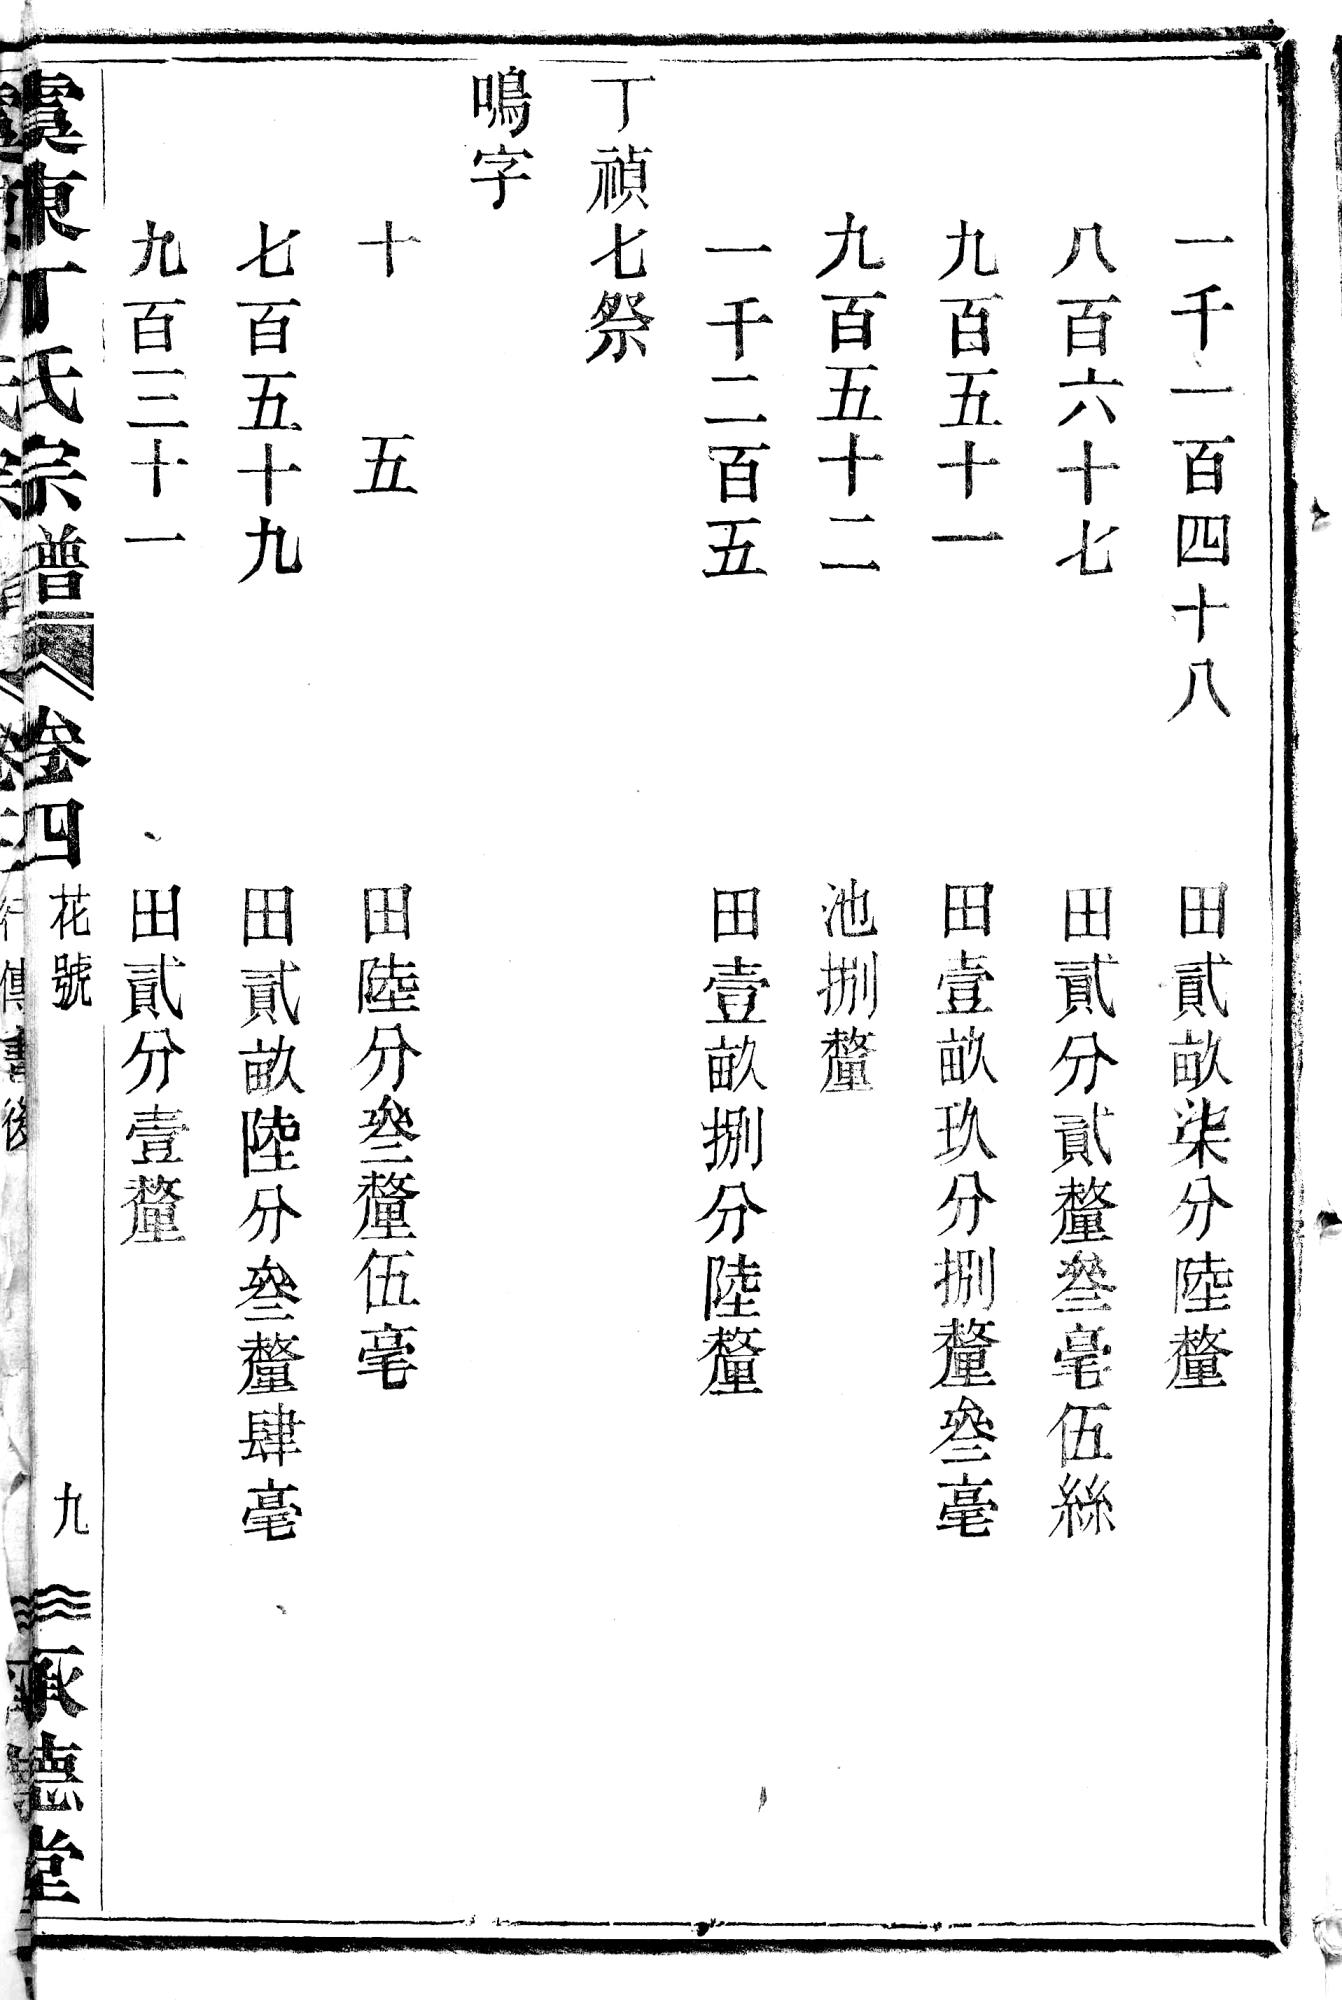 一千一百四十八 田貳畝柒分陸釐
八百六十七 田貳分貳釐叄毫伍絲
九百五十一 田壹畝玖分捌釐叄毫
九百五十二 池捌釐
一千二百五 田壹畝捌分陸釐
丁禎七祭
鳴字
十五 田陸分叄釐伍毫
七百五十九 田貳畝陸分叄釐肆毫
九百三十一 田貳分壹釐
虞東丁氏宗譜 卷四 花號 九 承德堂